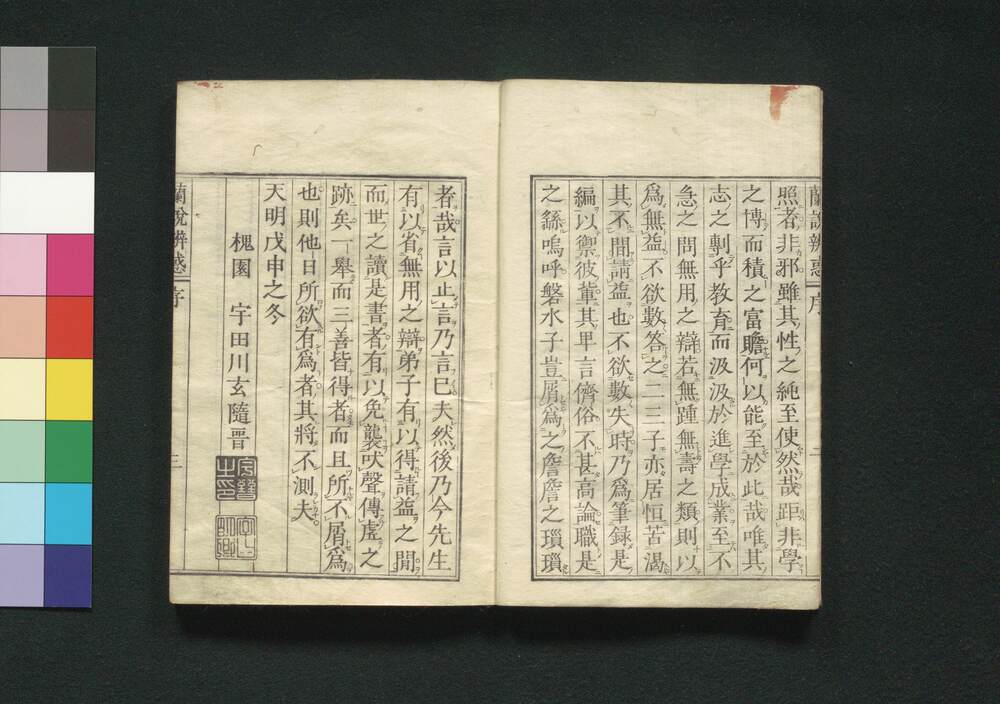 蘭說辨惑 序
照者非邪雖其性之純至使然哉距非學
之博而積之富贍何以能至於此哉唯其
志之剸乎教育而汲汲於進學成業至不
急之問無用之辯若無踵無壽之類則以
爲無益不欲數答之二三子亦居恒苦渴
其不間請益也不欲數失時乃爲筆録是
編以禦彼輩其卑言儕俗不甚高論職是
之繇嗚呼磐水子豈屑爲之詹詹之瑣瑣
者哉言以止言乃言已夫然後乃今先生
有以省無用之辯弟子有以得請益之間
而世之讀是書者有以免襲吠聲傳虛之
跡矣一舉而三善皆得者而且所不屑爲
也則他日所欲有爲者其將不測夫
天明戊申之冬
槐園 宇田川玄隨晋
蘭說辨惑 序 三